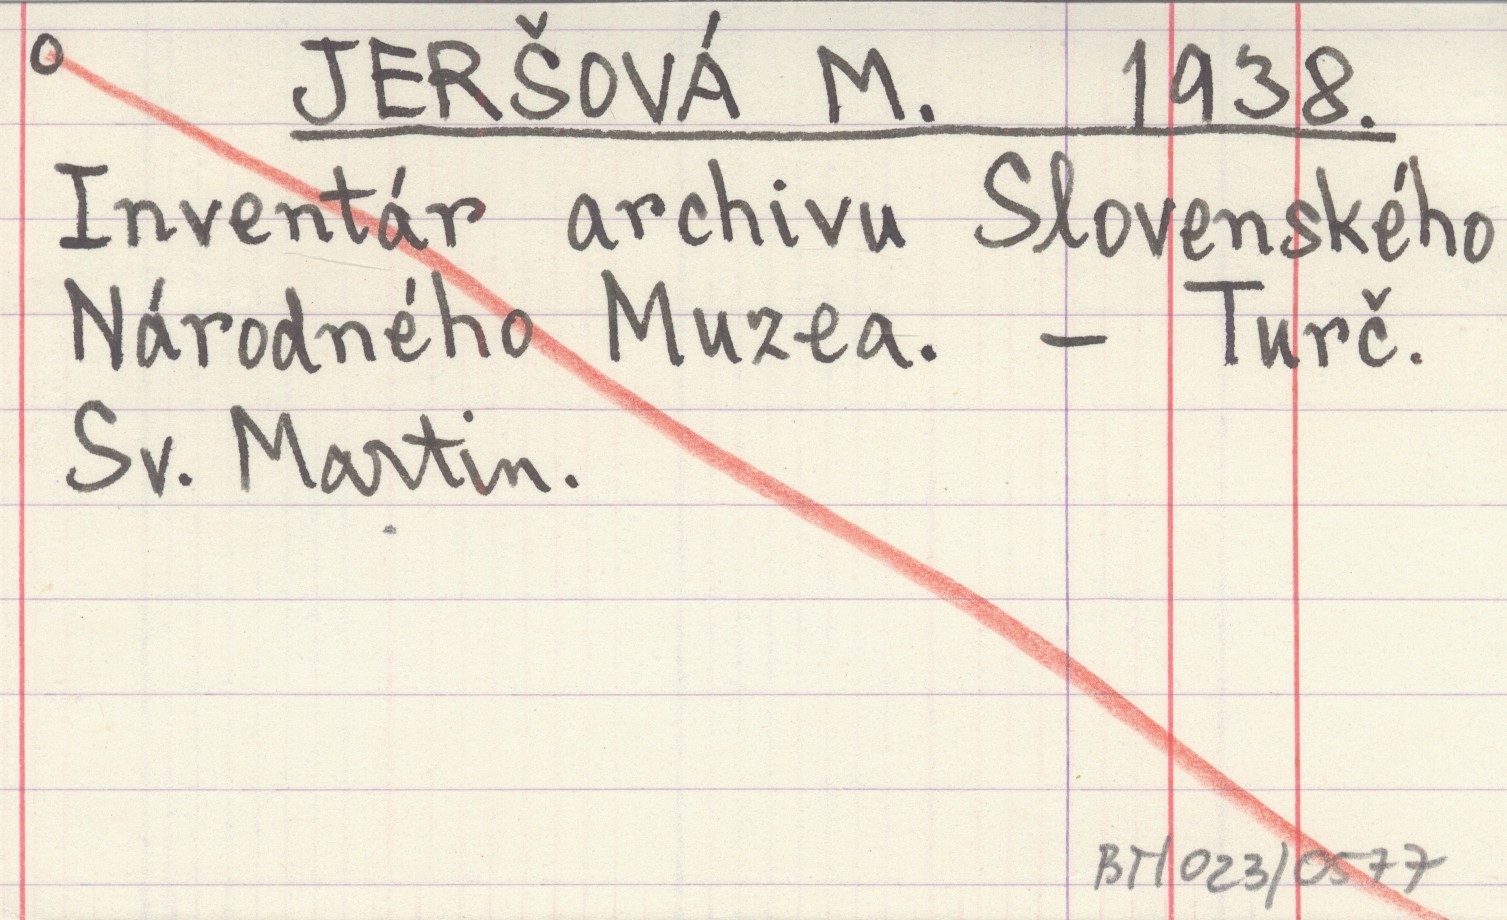 o JERŠOVÁ M. 1938.
Inventár archivu Slovenského
Národného Muzea. – Turč.
Sv. Martin.
BM 023/0577